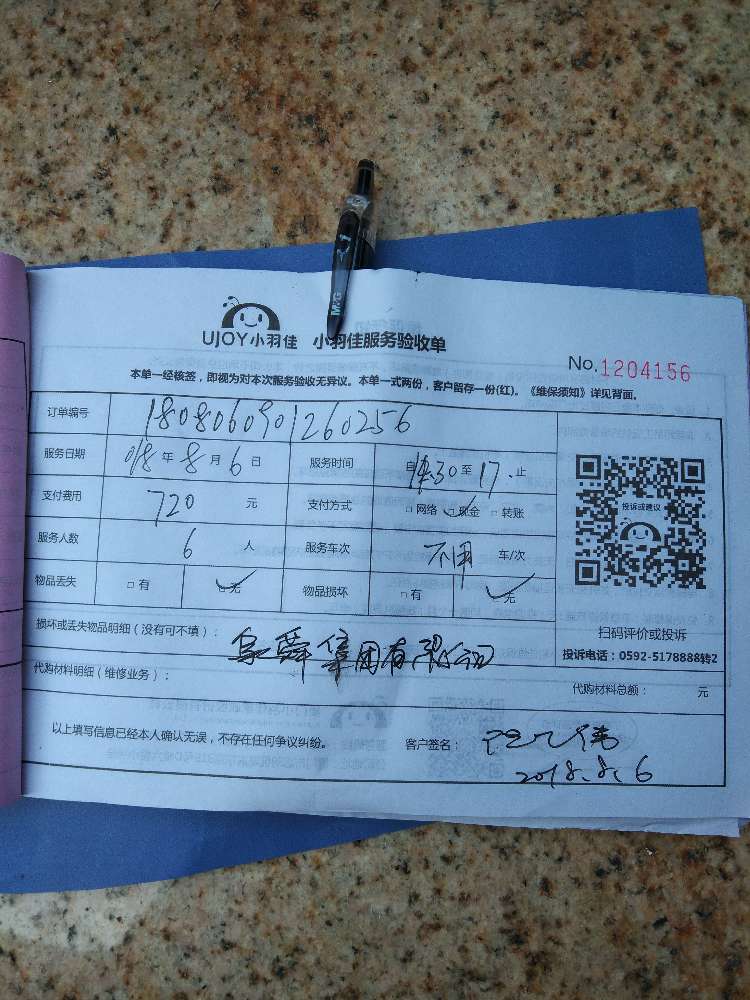 M&G
UJOY小羽佳 小羽佳服务验收单
No.1204156
本单一经核签，即视为对本次服务验收无异议。本单一式两份，客户留存一份(红)。《维保须知》详见背面。
订单编号 1808060901260256
服务日期 018年8月6日 服务时间 自14:30至17.止
支付费用 720元 支付方式 □网络 □现金 □转账
服务人数 6人 服务车次 不用 车/次
物品丢失 □有 □无 物品损坏 □有 □无
投诉或建议
扫码评价或投诉
投诉电话：0592-5178888转2
损坏或丢失物品明细（没有可不填）：
代购材料明细（维修业务）：
代购材料总额： 元
以上填写信息已经本人确认无误，不存在任何争议纠纷。 客户签名：
2018.8.6